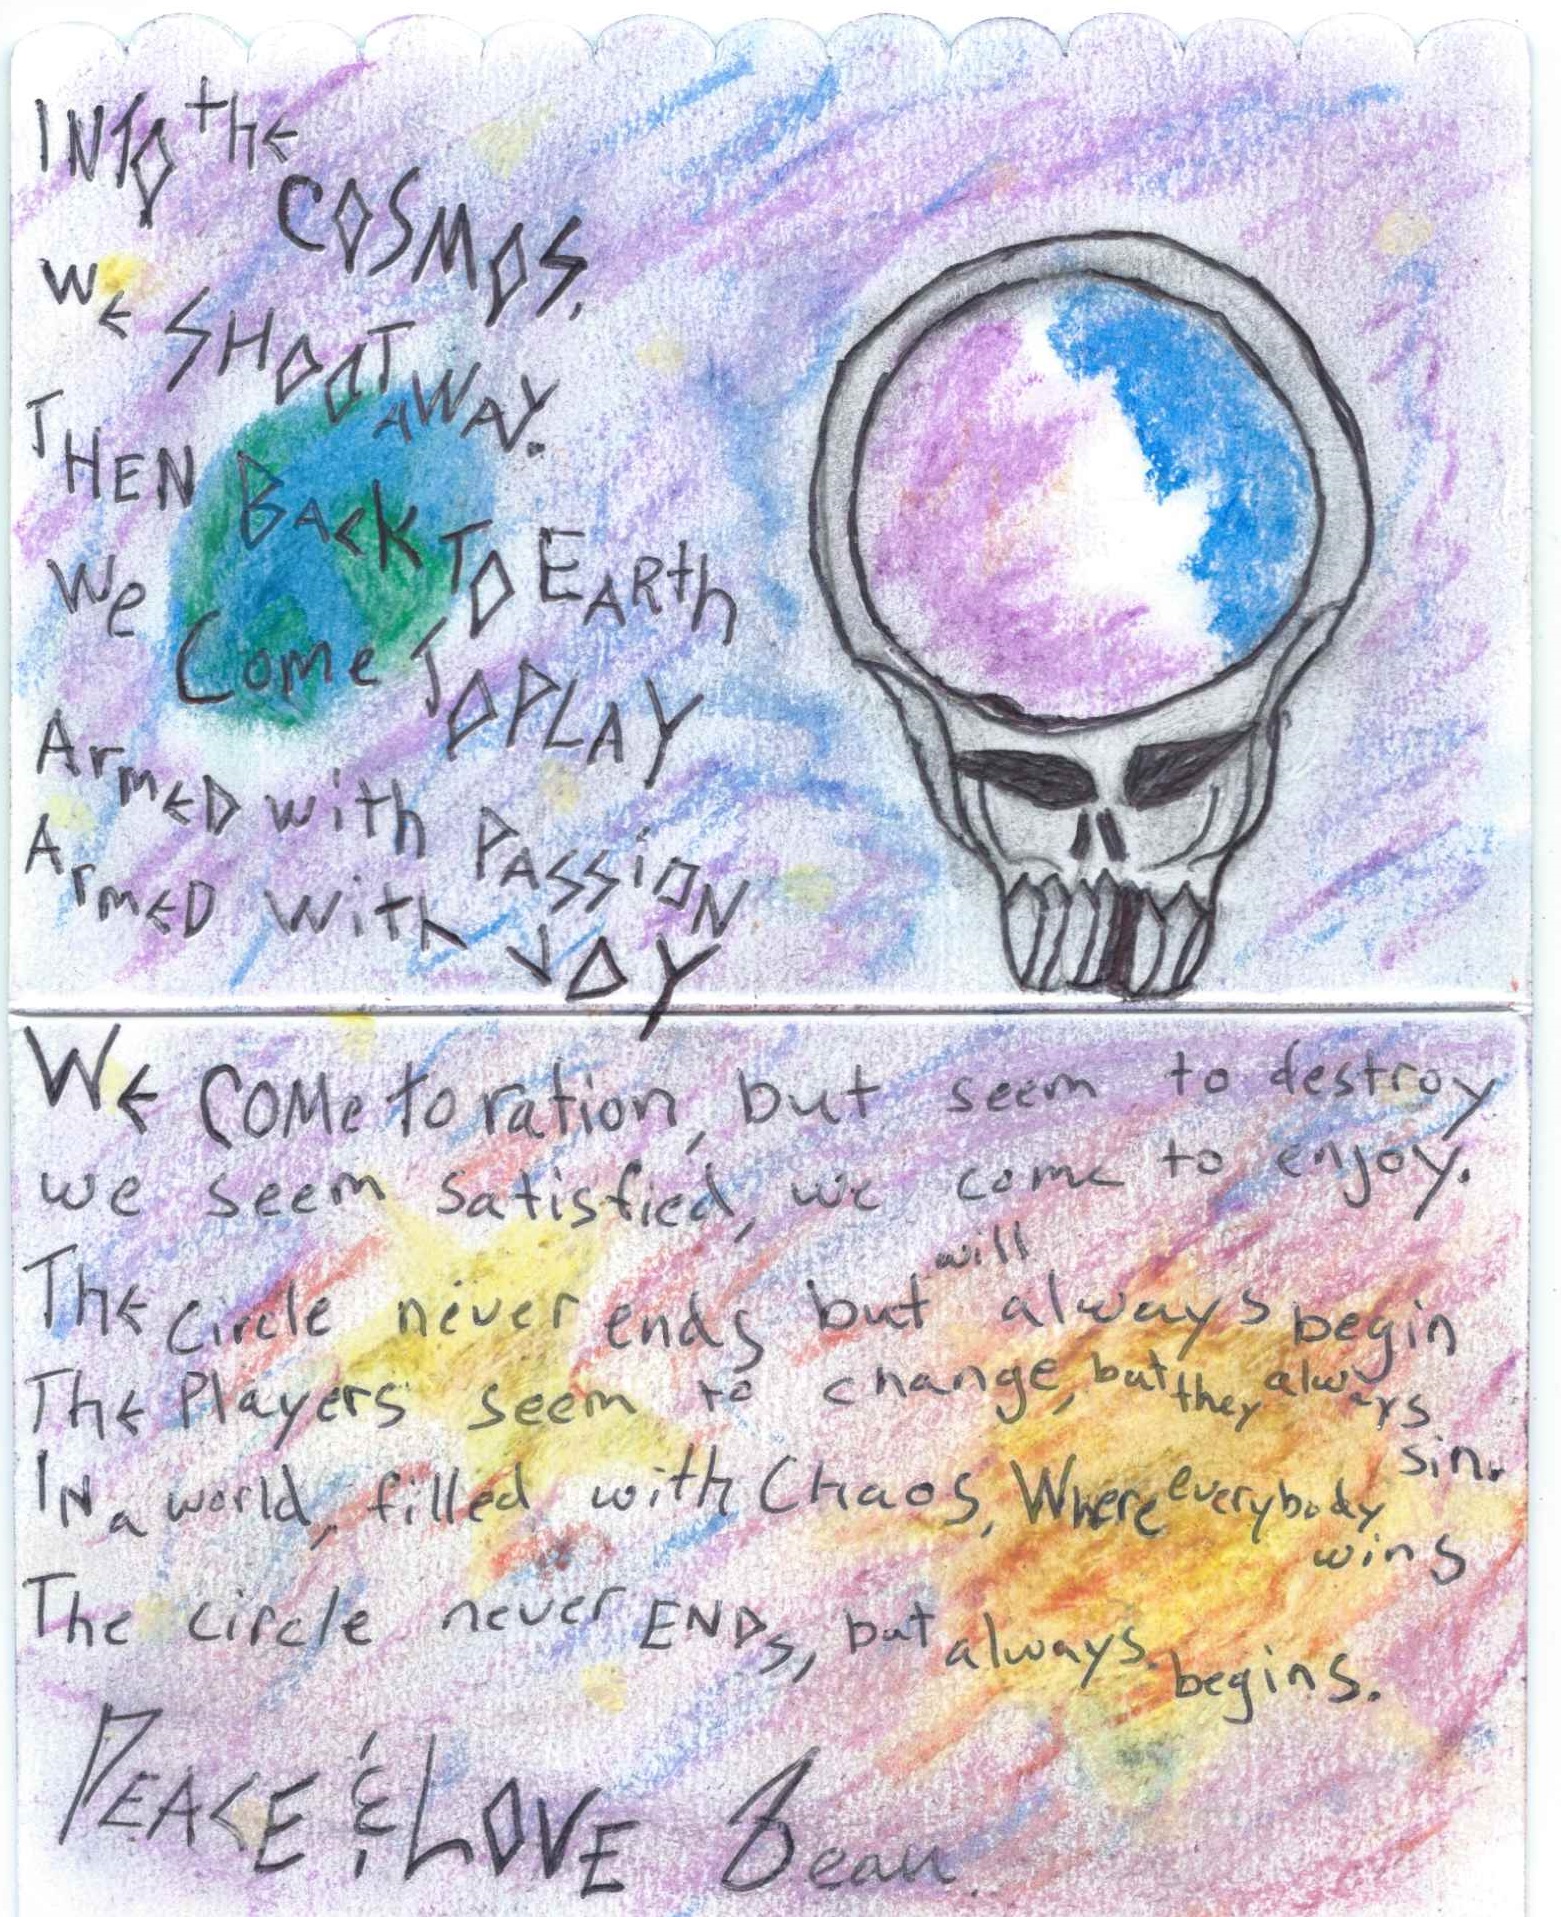 INTO the
COSMOS,
WE SHOOT AWAY.
THEN BACK TO EARth
We Come TO PLAY
ArmED with PASSiON
ArmED with JOY
WE COMe to ration, but seem to destroy
we seem satisfied, we come to enjoy.
will
ThE circle never ends but always begin
ThE Players seem to change, but they always
sin.
IN a world, filled with Chaos, Where everybody
wins
The circle never ENDs, but always begins.
PEACE & LOVE Beau